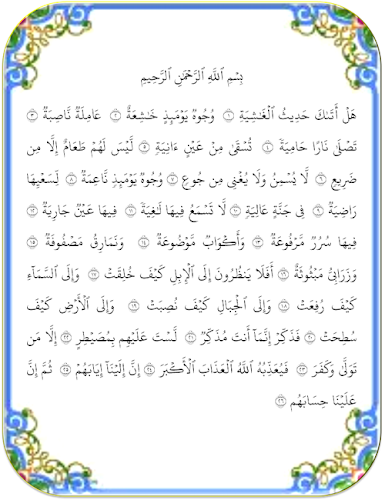 بِسْمِ ٱللَّهِ ٱلرَّحْمَٰنِ ٱلرَّحِيمِ
هَلْ أَتَىٰكَ حَدِيثُ ٱلْغَٰشِيَةِ ١ وُجُوهٌ يَوْمَئِذٍ خَٰشِعَةٌ ٢ عَامِلَةٌ نَّاصِبَةٌ ٣
تَصْلَىٰ نَارًا حَامِيَةً ٤ تُسْقَىٰ مِنْ عَيْنٍ ءَانِيَةٍ ٥ لَّيْسَ لَهُمْ طَعَامٌ إِلَّا مِن
ضَرِيعٍ ٦ لَّا يُسْمِنُ وَلَا يُغْنِى مِن جُوعٍ ٧ وُجُوهٌ يَوْمَئِذٍ نَّاعِمَةٌ ٨ لِّسَعْيِهَا
رَاضِيَةٌ ٩ فِى جَنَّةٍ عَالِيَةٍ ١٠ لَّا تَسْمَعُ فِيهَا لَٰغِيَةً ١١ فِيهَا عَيْنٌ جَارِيَةٌ ١٢
فِيهَا سُرُرٌ مَّرْفُوعَةٌ ١٣ وَأَكْوَابٌ مَّوْضُوعَةٌ ١٤ وَنَمَارِقُ مَصْفُوفَةٌ ١٥
وَزَرَابِىُّ مَبْثُوثَةٌ ١٦ أَفَلَا يَنظُرُونَ إِلَى ٱلْإِبِلِ كَيْفَ خُلِقَتْ ١٧ وَإِلَى ٱلسَّمَآءِ
كَيْفَ رُفِعَتْ ١٨ وَإِلَى ٱلْجِبَالِ كَيْفَ نُصِبَتْ ١٩ وَإِلَى ٱلْأَرْضِ كَيْفَ
سُطِحَتْ ٢٠ فَذَكِّرْ إِنَّمَآ أَنتَ مُذَكِّرٌ ٢١ لَّسْتَ عَلَيْهِم بِمُصَيْطِرٍ ٢٢ إِلَّا مَن
تَوَلَّىٰ وَكَفَرَ ٢٣ فَيُعَذِّبُهُ ٱللَّهُ ٱلْعَذَابَ ٱلْأَكْبَرَ ٢٤ إِنَّ إِلَيْنَآ إِيَابَهُمْ ٢٥ ثُمَّ إِنَّ
عَلَيْنَا حِسَابَهُم ٢٦